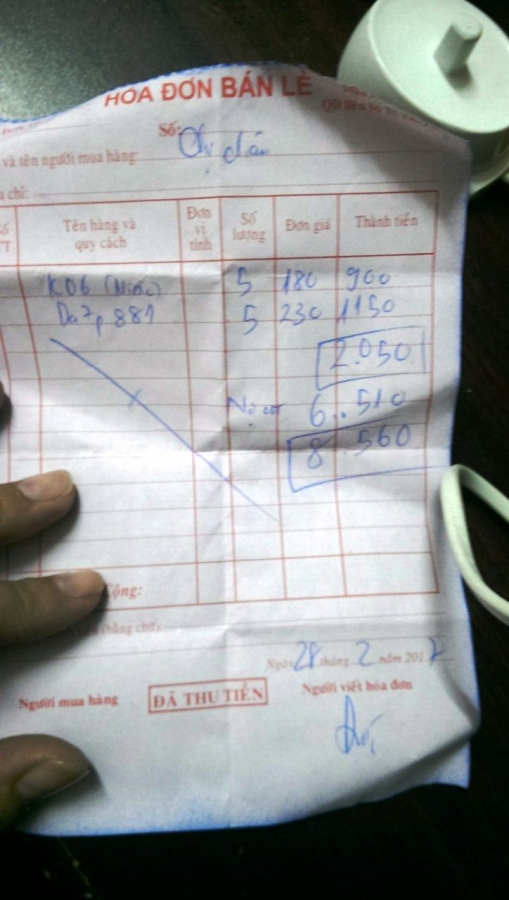 HÓA ĐƠN BÁN LẺ
Số:
và tên người mua hàng: Chị
chỉ:
Tên hàng và quy cách Đơn vị tính Số lượng Đơn giá Thành tiền
K06 5 180 900
881 5 230 1150
2.050
Nợ cũ 6..510
8.560
Cộng:
(bằng chữ):
Ngày 28 tháng 2 năm 2017
Người mua hàng ĐÃ THU TIỀN Người viết hóa đơn